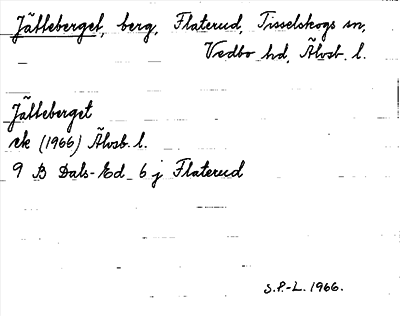 Jätteberget, berg, Flaterud, Tisselskogs sn,
Vedbo hd, Älvsb. l.
Jätteberget
ek (1966) Älvsb. l.
9 B Dals-Ed 6 j Flaterud
S.P.-L. 1966.